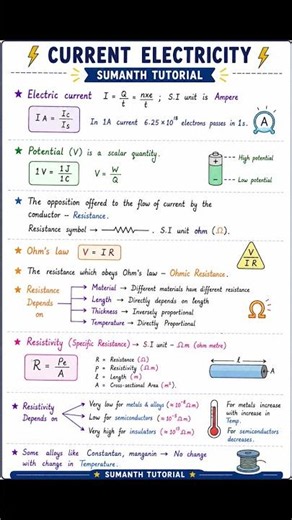 CURRENT ELECTRICITY
SUMANTH TUTORIAL
★ Electric current I = Q/t = nxe/t ; S.I unit is Ampere
1A = 1C/1s In 1A current 6.25×10¹⁸ electrons passes in 1s. A
★ Potential (V) is a scalar quantity.
1V = 1J/1C V = W/Q
+ High potential
- Low potential
★ The opposition offered to the flow of current by the
conductor - Resistance.
Resistance symbol → . S.I unit ohm (Ω).
★ Ohm's law V = IR
V
I R
★ The resistance which obeys Ohm's law - Ohmic Resistance.
★ Resistance Depends on
Material → Different materials have different resistance
Length → Directly depends on length
Thickness → Inversely proportional
Temperature → Directly Proportional
Ω
★ Resistivity (Specific Resistance) → S.I unit - Ωm (ohm metre)
R = ρℓ/A
R = Resistance (Ω)
ρ = Resistivity (Ωm)
ℓ = Length (m)
A = Cross-sectional Area (m²)
ℓ
A
★ Resistivity Depends on
Very low for metals & alloys
Low for semiconductors
Very high for insulators
For metals increase with increase in Temp.
For semiconductors decreases.
★ Some alloys like Constantan, manganin → No change
with change in Temperature.
SUMANTH TUTORIAL